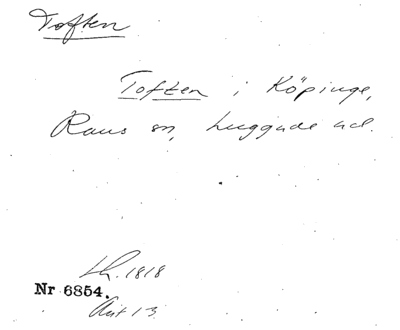 Toften
Toften i Köpinge,
Raus sn, Luggude hd.
Lh. 1818
Nr 6854.
Akt 13